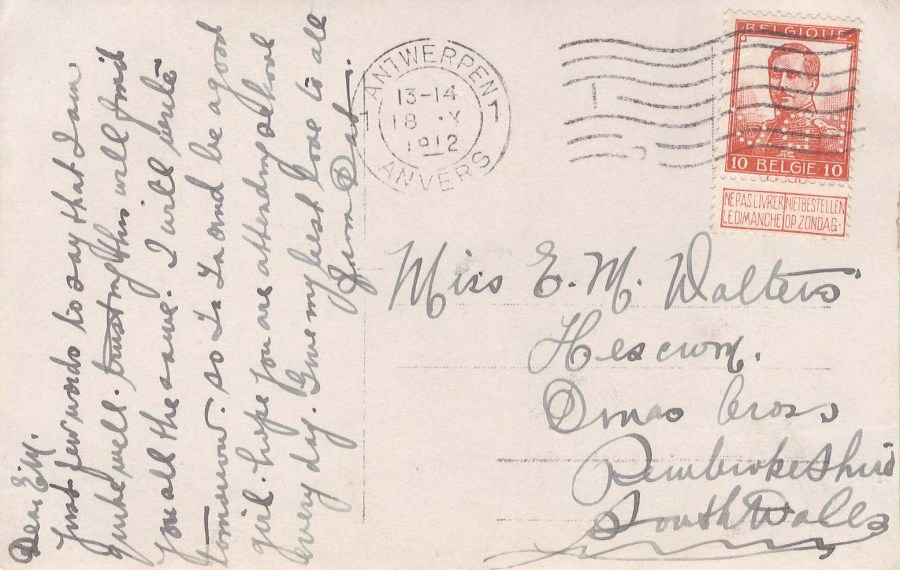 Dear E.M.
Just few words to say that I am
quite well. trusting this will find
you all the same. I will write
tomorrow. so Ta Ta and be a good
girl. hope you are attending school
every day. Give my best love to all
from Dad.
ANTWERPEN
13-14
18 X
1912
ANVERS
1 1
BELGIQUE
10 BELGIE 10
NE PAS LIVRER NIET BESTELLEN
LE DIMANCHE OP ZONDAG.
Miss E. M. Walters
Hescwm.
Dinas Cross
Pembrokeshire
South Wales